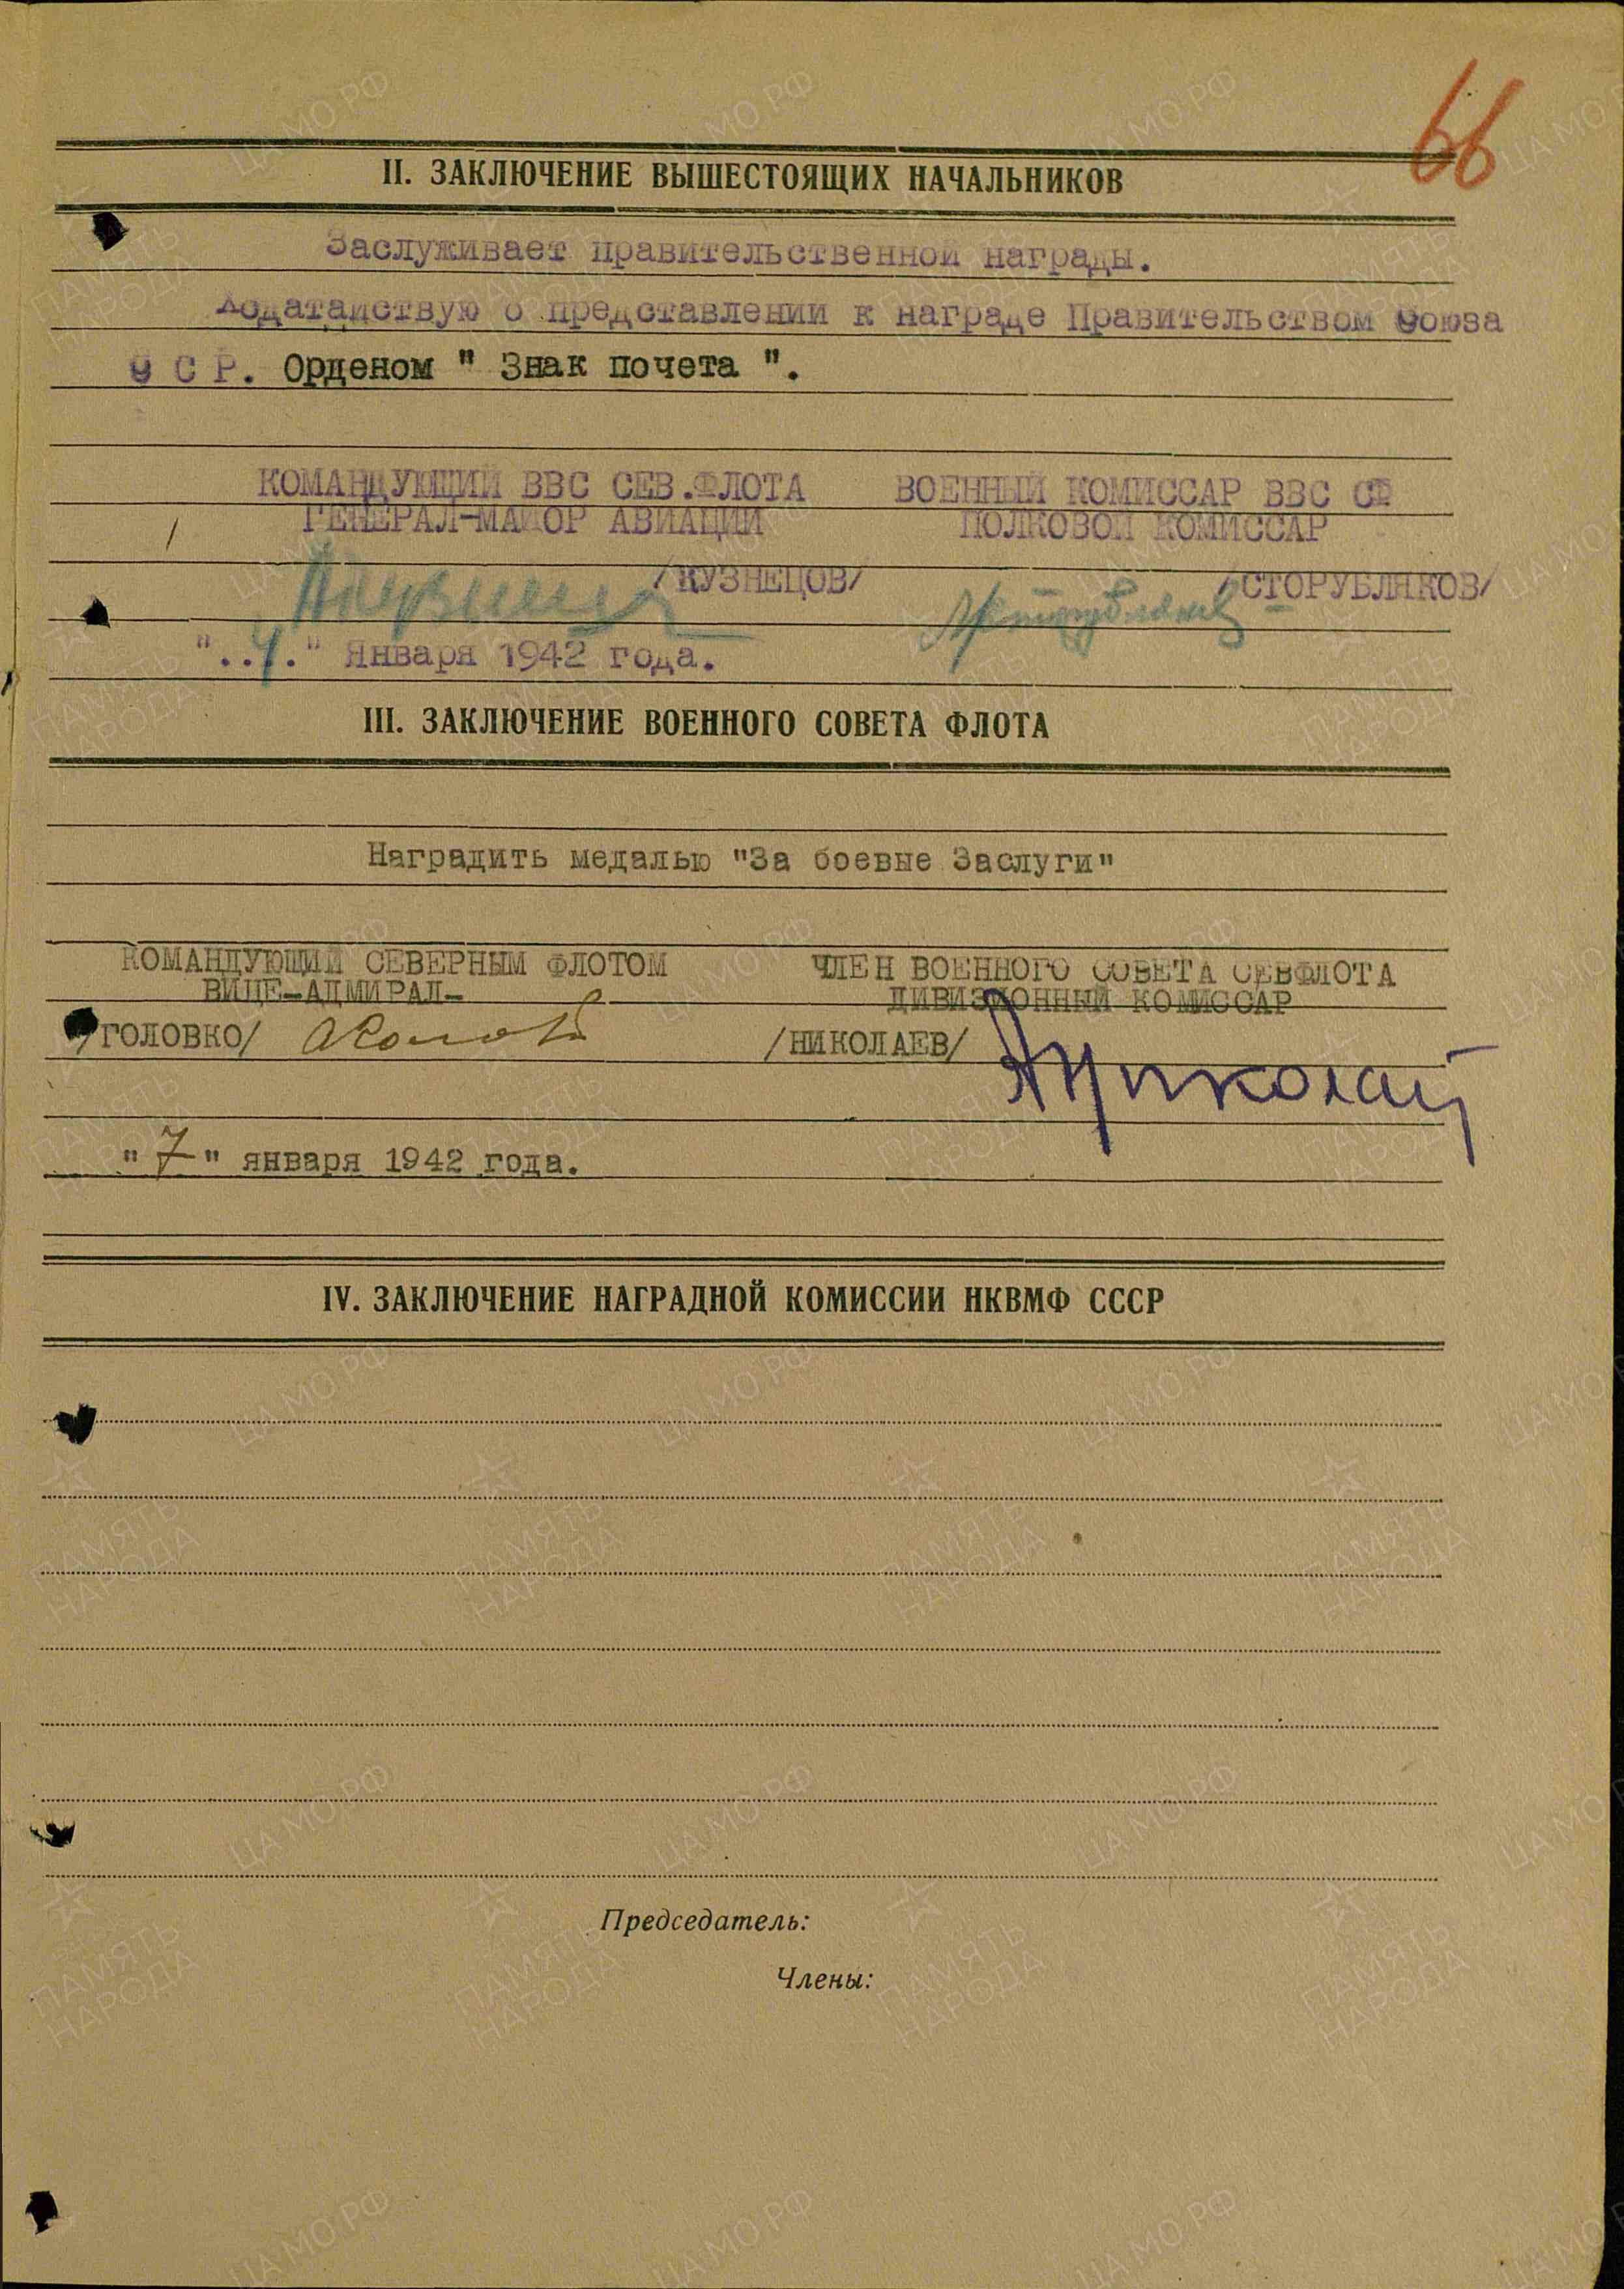 66
II. ЗАКЛЮЧЕНИЕ ВЫШЕСТОЯЩИХ НАЧАЛЬНИКОВ
Заслуживает правительственной награды.
Ходатайствую о представлении к награде Правительством Союза
С С Р. Орденом " Знак почета ".
КОМАНДУЮЩИЙ ВВС СЕВ.ФЛОТА ВОЕННЫЙ КОМИССАР ВВС СФ
ГЕНЕРАЛ-МАЙОР АВИАЦИИ ПОЛКОВОЙ КОМИССАР
/КУЗНЕЦОВ/ /СТОРУБЛЯКОВ/
"..4." Января 1942 года.
III. ЗАКЛЮЧЕНИЕ ВОЕННОГО СОВЕТА ФЛОТА
Наградить медалью "За боевые Заслуги"
КОМАНДУЮЩИЙ СЕВЕРНЫМ ФЛОТОМ ЧЛЕН ВОЕННОГО СОВЕТА СЕВФЛОТА
ВИЦЕ-АДМИРАЛ- ДИВИЗИОННЫЙ КОМИССАР
/ГОЛОВКО/ /НИКОЛАЕВ/
"7" января 1942 года.
IV. ЗАКЛЮЧЕНИЕ НАГРАДНОЙ КОМИССИИ НКВМФ СССР
Председатель:
Члены:
ПАМЯТЬ НАРОДА
ЦА МО РФ